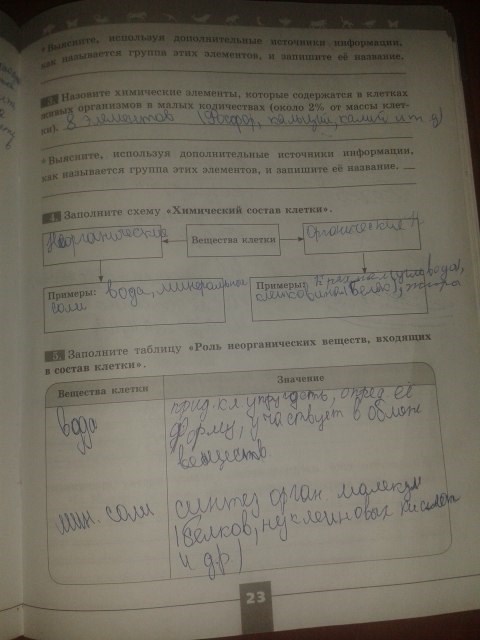 • Выясните, используя дополнительные источники информации,
как называется группа этих элементов, и запишите её название.
3. Назовите химические элементы, которые содержатся в клетках
живых организмов в малых количествах (около 2% от массы клет-
ки). 8 элементов (фосфор, кальций, калий и т д)
• Выясните, используя дополнительные источники информации,
как называется группа этих элементов, и запишите её название.
4. Заполните схему «Химический состав клетки».
Неорганические
Вещества клетки
Органические
Примеры: вода, минеральные
соли
Примеры: углеводы,
(белко), жира
5. Заполните таблицу «Роль неорганических веществ, входящих
в состав клетки».
Вещества клетки
Значение
вода
упругость, опред её
форму, участвует в обмене
веществ
мин. соли
синтез орган малекул
(белков, нуклеиновых кислот
и др)
23